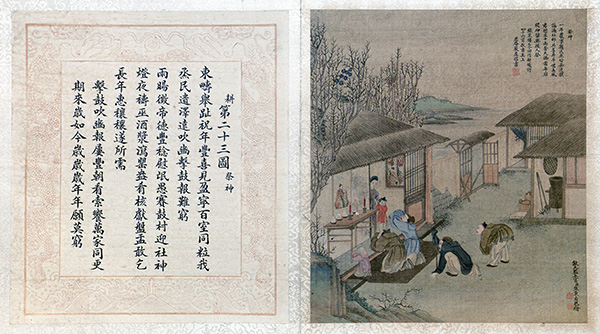 耕 第二十三圖 祭神
東疇舉趾祝年豐喜見盈寧百室同粒我
烝民遺澤遠吹豳擊鼓報難窮
雨暘徵帝德豐稔慰氓愚賽鼓村迎社神
燈夜禱巫酒漿瀉罌缶肴核獻盤盂敢乞
長年惠穰穰遂所需
擊鼓吹豳報屢豐朝看索饗萬家同更
期來歲如今歲歲歲年年願莫窮
祭神